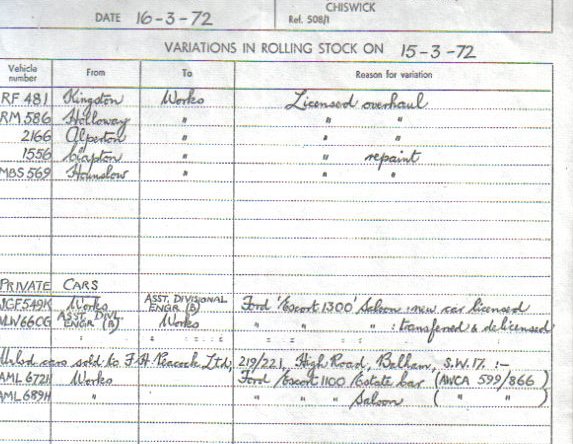 CHISWICK
DATE 16-3-72 Ref. 508/1
VARIATIONS IN ROLLING STOCK ON 15-3-72
Vehicle number From To Reason for variation
RF 481 Kingston Works Licensed overhaul
RM 586 Holloway " " "
2166 Alperton " " "
1556 Clapton " " repaint
MBS 569 Hounslow " " "
PRIVATE CARS
JGF549K Works ASST. DIVISIONAL ENGR (B) Ford 'Escort 1300' Saloon :new car licensed
ASST. DIVL. ENGR (B) Works " " " : transferred & delicensed
cars sold to F.H. Peacock Ltd, 219/221, High Road, Balham, S.W.17. :-
AML 672H Works Ford 'Escort 1100' Estate Car (AWCA 599/866)
AML 689H " " " " Saloon ( " " )